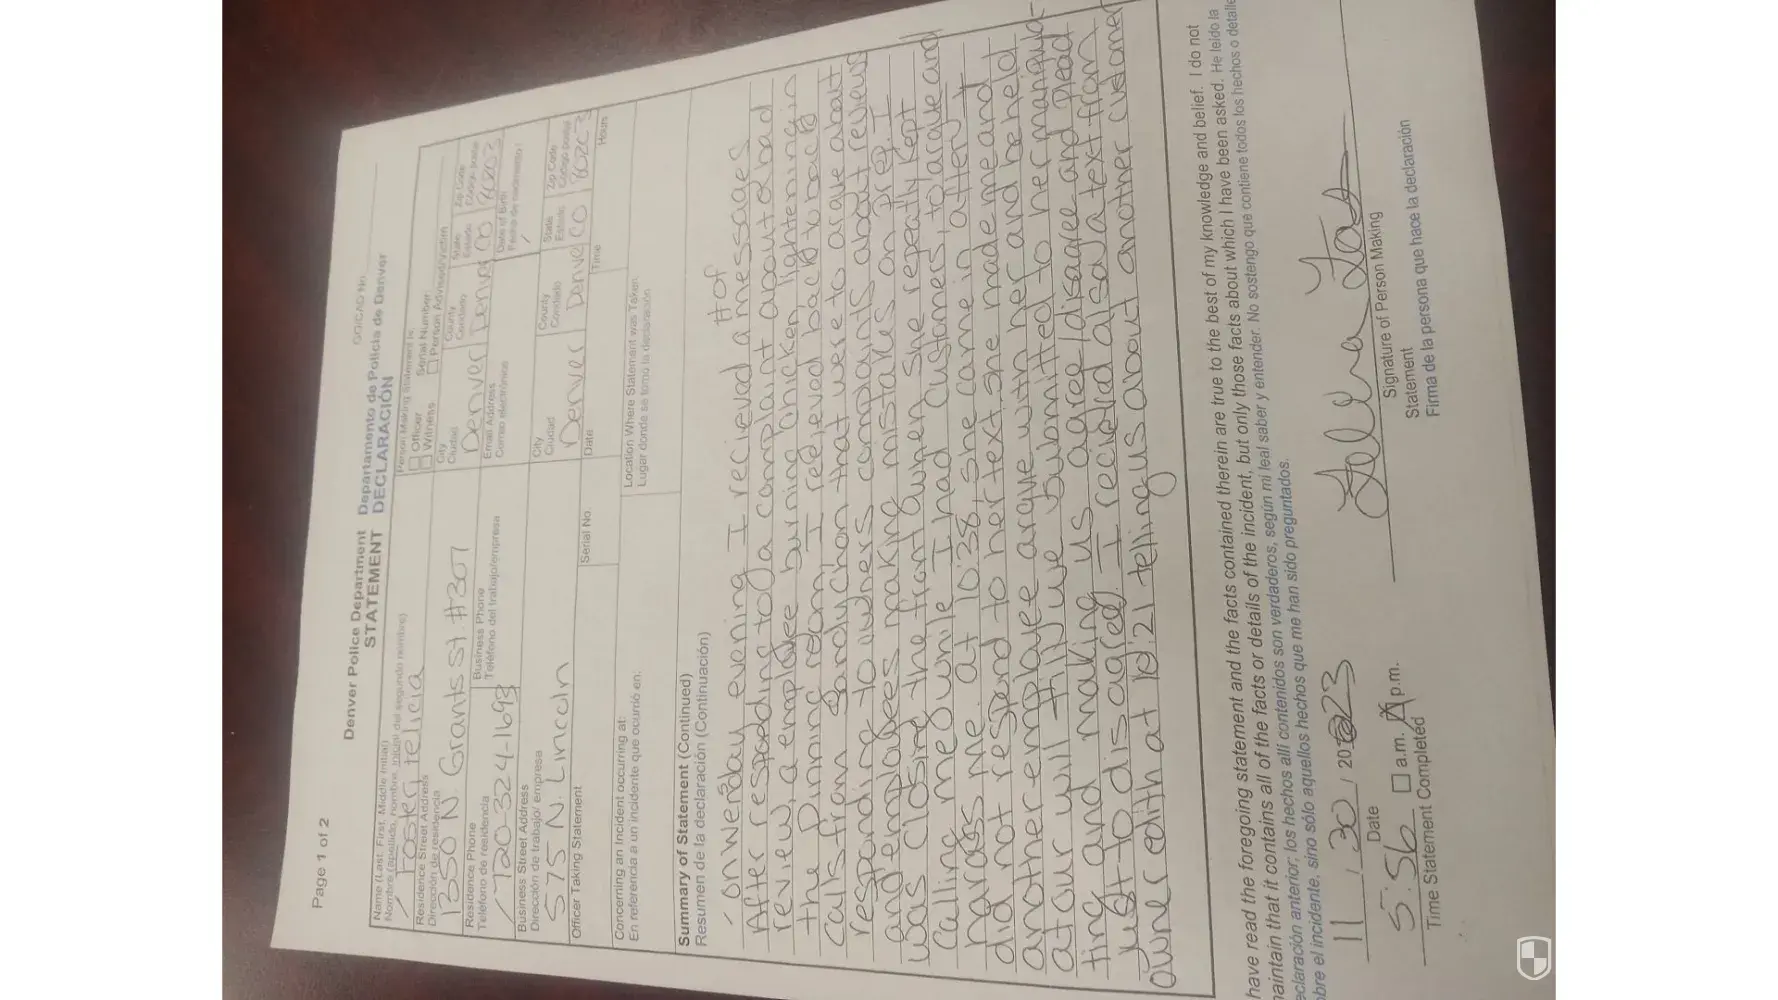 Page 1 of 2
Denver Police Department Departamento de Policía de Denver
STATEMENT DECLARACIÓN
GO/CAD No.
Name (Last, First, Middle Initial)
Nombre (apellido, nombre, inicial del segundo nombre)
Foster, Felicia
Person Making Statement is:
Officer Serial Number:
Witness Person Advised/Victim
Residence Street Address
Dirección de residencia
1350 N. Grants St. #307
City
Ciudad
Denver
County
Condado
Denver
State
Estado
CO
Zip Code
Código postal
80203
Residence Phone
Teléfono de residencia
720-324-1693
Business Phone
Teléfono del trabajo/empresa
Email Address
Correo electrónico
Date of Birth
Fecha de nacimiento
Business Street Address
Dirección de trabajo/ empresa
575 N. Lincoln
City
Ciudad
Denver
County
Condado
Denver
State
Estado
CO
Zip Code
Código postal
80203
Officer Taking Statement
Serial No.
Date
Time
Hours
Concerning an Incident occurring at:
En referencia a un incidente que ocurrió en:
Location Where Statement was Taken:
Lugar donde se tomó la declaración
Summary of Statement (Continued)
Resumen de la declaración (Continuación)
- on Wensday evening I recieved a # of messages
After responding to a complaint about a bad
review, a employee burning chicken, lightening in
the Dinning room, I recieved back to back
calls from Sandychon that were to argue about
responding to owners complaints about reviews
and employees making mistakes on prep. I
was closing the front when she repeatly kept
calling me while I had customers, to argue and
harass me. at 10:38, she came in after I
did not respond to her text, she made me and
another employee argue with her and be held
at our will till we submitted to her manipula-
ting and making us agree/disagree and plead
just to disagree. I recieved also a text from
owner edith at 10:21 telling us about another customer
have read the foregoing statement and the facts contained therein are true to the best of my knowledge and belief. I do not
maintain that it contains all of the facts or details of the incident, but only those facts about which I have been asked. He leído la
declaración anterior; los hechos allí contenidos son verdaderos, según mi leal saber y entender. No sostengo que contiene todos los hechos o detalles
sobre el incidente, sino sólo aquellos hechos que me han sido preguntados.
11 / 30 / 2023
Date
5:56 a.m. p.m.
Time Statement Completed
Signature of Person Making
Statement
Firma de la persona que hace la declaración